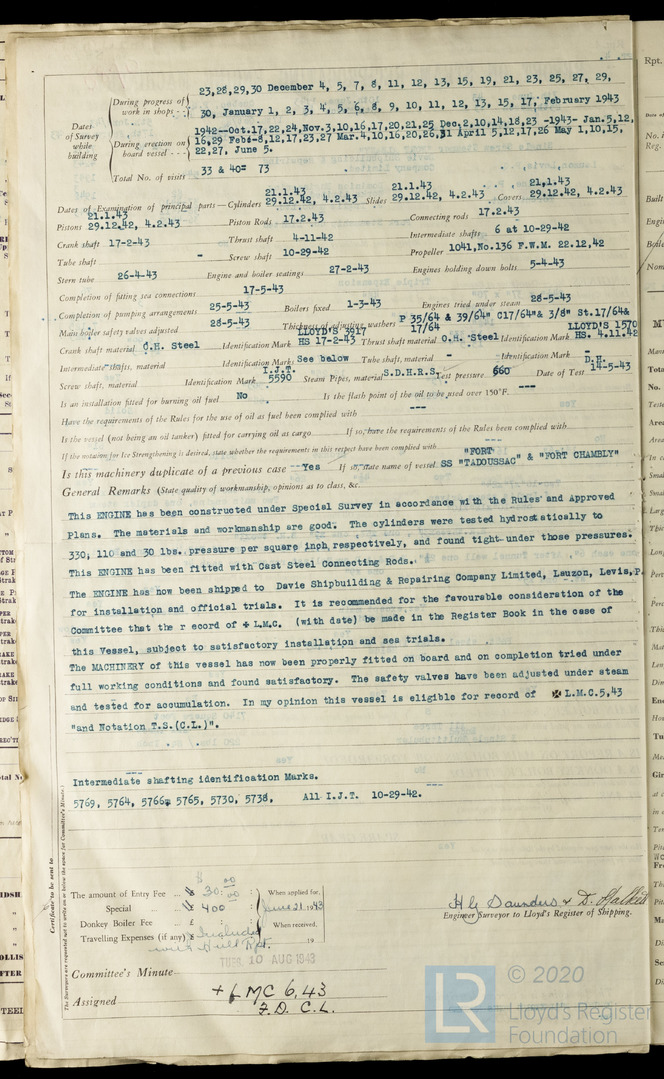 23,28,29,30 December 4, 5, 7, 8, 11, 12, 13, 15, 19, 21, 23, 25, 27, 29,
During progress of work in shops - - 30, January 1, 2, 3, 4, 5, 6, 8, 9, 10, 11, 12, 13, 15, 17, February 1943
Dates of Survey while building
1942-Oct.17,22,24,Nov.3,10,16,17,20,21,25 Dec.2,10,14,18,23 -1943- Jan.5,12,
During erection on board vessel - - - 16,29 Feb.8,12,17,23,27 Mar.4,10,16,20,26,31 April 5,12,17,26 May 1,10,15,
22,27, June 5.
Total No. of visits 33 & 40= 73
21.1.43 21.1.43 21.1.43
Dates of Examination of principal parts—Cylinders 29.12.42, 4.2.43 Slides 29.12.42, 4.2.43 Covers 29.12.42, 4.2.43
21.1.43
Pistons 29.12.42, 4.2.43 Piston Rods 17.2.43 Connecting rods 17.2.43
Crank shaft 17-2-43 Thrust shaft 4-11-42 Intermediate shafts 6 at 10-29-42
Tube shaft - Screw shaft 10-29-42 Propeller 1041,No.136 F.W.M. 22.12,42
Stern tube 26-4-43 Engine and boiler seatings 27-2-43 Engines holding down bolts 5-4-43
Completion of fitting sea connections 17-5-43
Completion of pumping arrangements 25-5-43 Boilers fixed 1-3-43 Engines tried under steam 28-5-43
Main boiler safety valves adjusted 28-5-43 Thickness of adjusting washers P 35/64 & 39/64" C17/64"& 3/8" St.17/64& 17/64
LLOYD'S 3917 LLOYD'S 1570
Crank shaft material O.H. Steel Identification Mark HS 17-2-43 Thrust shaft material O.H. Steel Identification Mark HS. 4.11.42
Intermediate shafts, material Identification Marks See below Tube shaft, material - Identification Mark -
I.J.T. D.H.
Screw shaft, material Identification Mark 5590 Steam Pipes, material S.D.H.R.S. Test pressure 660 Date of Test 14-5-43
Is an installation fitted for burning oil fuel No Is the flash point of the oil to be used over 150°F. ---
Have the requirements of the Rules for the use of oil as fuel been complied with ---
Is the vessel (not being an oil tanker) fitted for carrying oil as cargo If so, have the requirements of the Rules been complied with
If the notation for Ice Strengthening is desired, state whether the requirements in this respect have been complied with
"FORT
Is this machinery duplicate of a previous case --Yes If so, state name of vessel SS "TADOUSSAC" & "FORT CHAMBLY"
General Remarks (State quality of workmanship, opinions as to class, &c.
This ENGINE has been constructed under Special Survey in accordance with the Rules and Approved
Plans. The materials and workmanship are good. The cylinders were tested hydrostatically to
330, 110 and 30 lbs. pressure per square inch respectively, and found tight under those pressures.
This ENGINE has been fitted with Cast Steel Connecting Rods.
The ENGINE has now been shipped to Davie Shipbuilding & Repairing Company Limited, Lauzon, Levis,P.
for installation and official trials. It is recommended for the favourable consideration of the
Committee that the r ecord of + L.M.C. (with date) be made in the Register Book in the case of
this Vessel, subject to satisfactory installation and sea trials.
The MACHINERY of this vessel has now been properly fitted on board and on completion tried under
full working conditions and found satisfactory. The safety valves have been adjusted under steam
and tested for accumulation. In my opinion this vessel is eligible for record of ✠ L.M.C.5,43
"and Notation T.S.(C.L.)".
Intermediate shafting identification Marks.
5769, 5764, 5766, 5765, 5730, 5738, All I.J.T. 10-29-42.
Certificate to be sent to
The Surveyors are requested not to write on or below the space for Committee's Minute.
The amount of Entry Fee ... $ 30:00 When applied for,
Special ... $ 400 June 21 1943
Donkey Boiler Fee ... £ When received,
Travelling Expenses (if any) £ Included 19
with Hull Rpt.
H G Saunders & D. Halket
Engineer Surveyor to Lloyd's Register of Shipping.
TUES. 10 AUG 1943
Committee's Minute
Assigned + LMC 6,43
F.D. C.L.
LR
© 2020
Lloyd's Register
Foundation